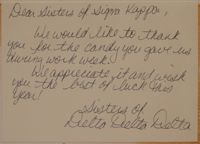 Dear Sisters of Sigma Kappa,
We would like to thank
you for the candy you gave us
during work week.
We appreciate it and wish
you the best of luck this
year!
Sisters of
Delta Delta Delta